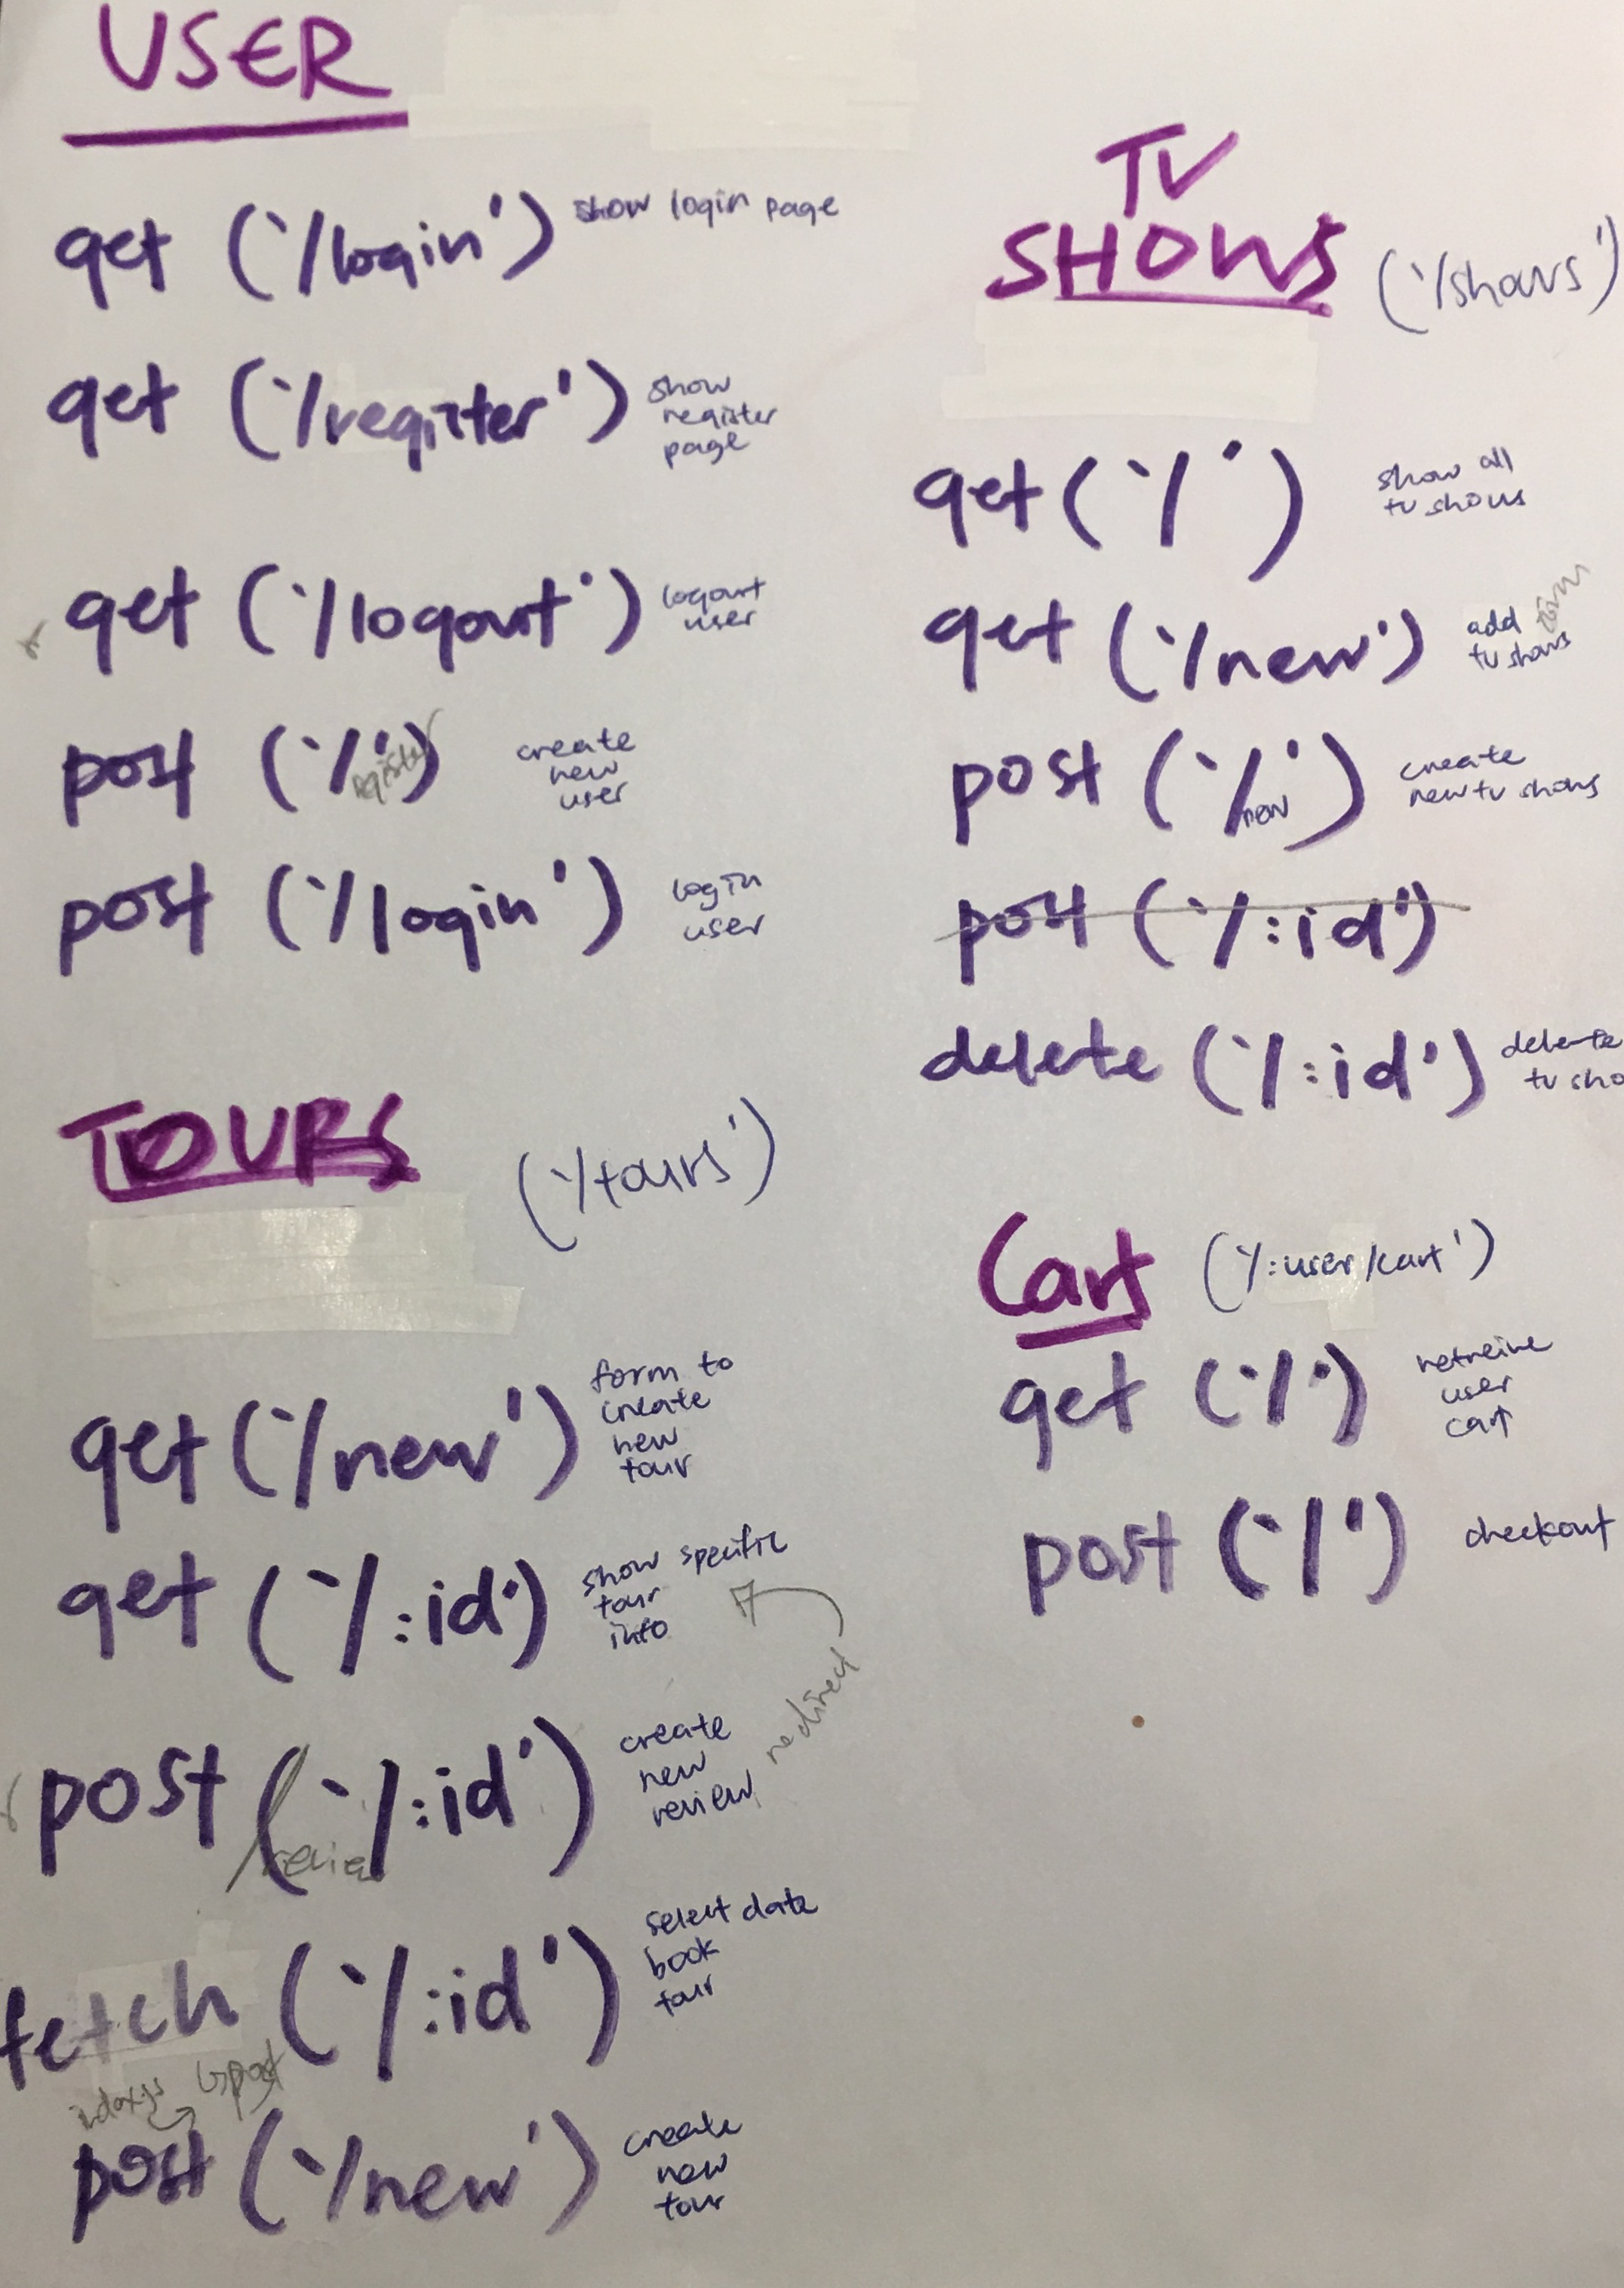 USER
get ('/login') show login page
get ('/register') show
register
page
get ('/logout') logout
user
post ('/register') create
new
user
post ('/login') login
user
TOURS ('/tours')
get ('/new') form to
create
new
tour
get ('/:id') show specific
tour
info
redirect
post ('/:id') create
new
review
/review
fetch ('/:id') select date
book
tour
post
post ('/new') create
new
tour
TV
SHOWS ('/shows')
get ('/') show all
tv shows
get ('/new') add form
tv shows
post ('/new') create
new tv shows
post ('/:id')
delete ('/:id') delete
tv sho
Cart ('/:user/cart')
get ('/') retreive
user
cart
post ('/') checkout